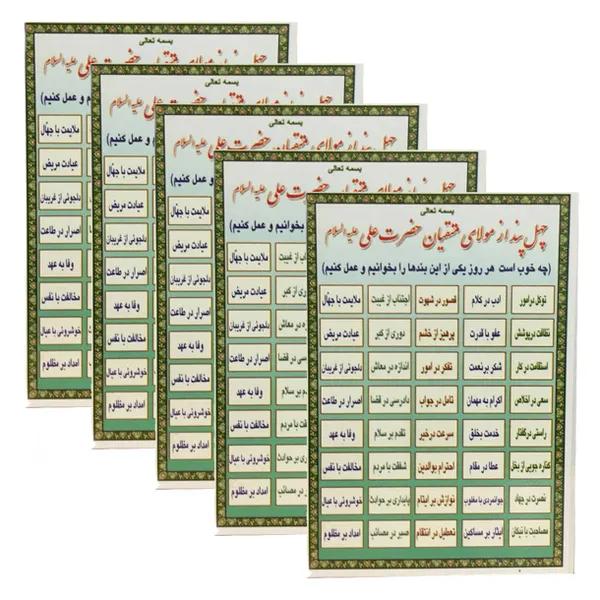 بسمه تعالی
چهل پند از مولای متقیان حضرت علی علیه السلام
(چه خوب است هر روز یکی از این پندها را بخوانیم و عمل کنیم)
توکل در امور ادب در کلام قصور در شهوت اجتناب از غیبت ملایمت با جهّال
نظافت در پوشش عفو با قدرت پرهیز از خشم دوری از کبر عیادت مریض
استقامت در کار شکر بر نعمت تفکر در امور اندازه در معاش دلجوئی از غریبان
سعی در اخلاص اکرام به مهمان تامل در جواب دادرسی در قضا اصرار در طاعت
راستی در گفتار خدمت بخلق سرعت در خیر تقدم بر سلام وفا به عهد
کناره جویی از بخل عطا در مقام احترام بوالدین شفقت با مردم مخالفت با نفس
نصرت در جهاد جوانمردی با مغلوب نوازش بر ایتام پایداری بر حوادث خوشروئی با عیال
مصاحبت با نیکان ایثار بر مساکین تعطیل در انتقام صبر در مصائب امداد بر مظلوم